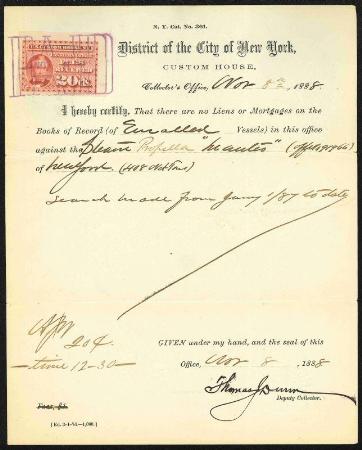 N. Y. Cat. No. 361.
PAID
20 CTS.
District of the City of New York,
CUSTOM HOUSE,
Collector's Office, Nov 8th 1888
I hereby certify, That there are no Liens or Mortgages on the
Books of Record (of Enrolled Vessels) in this office
against the Steam Propeller
of New York (408 Net Tons)
Search made from Jany 1/87 to date
20¢
time 12-30
GIVEN under my hand, and the seal of this
Office, Nov 8 1888
Thomas J Dunn
Deputy Collector.
Fees, $1.